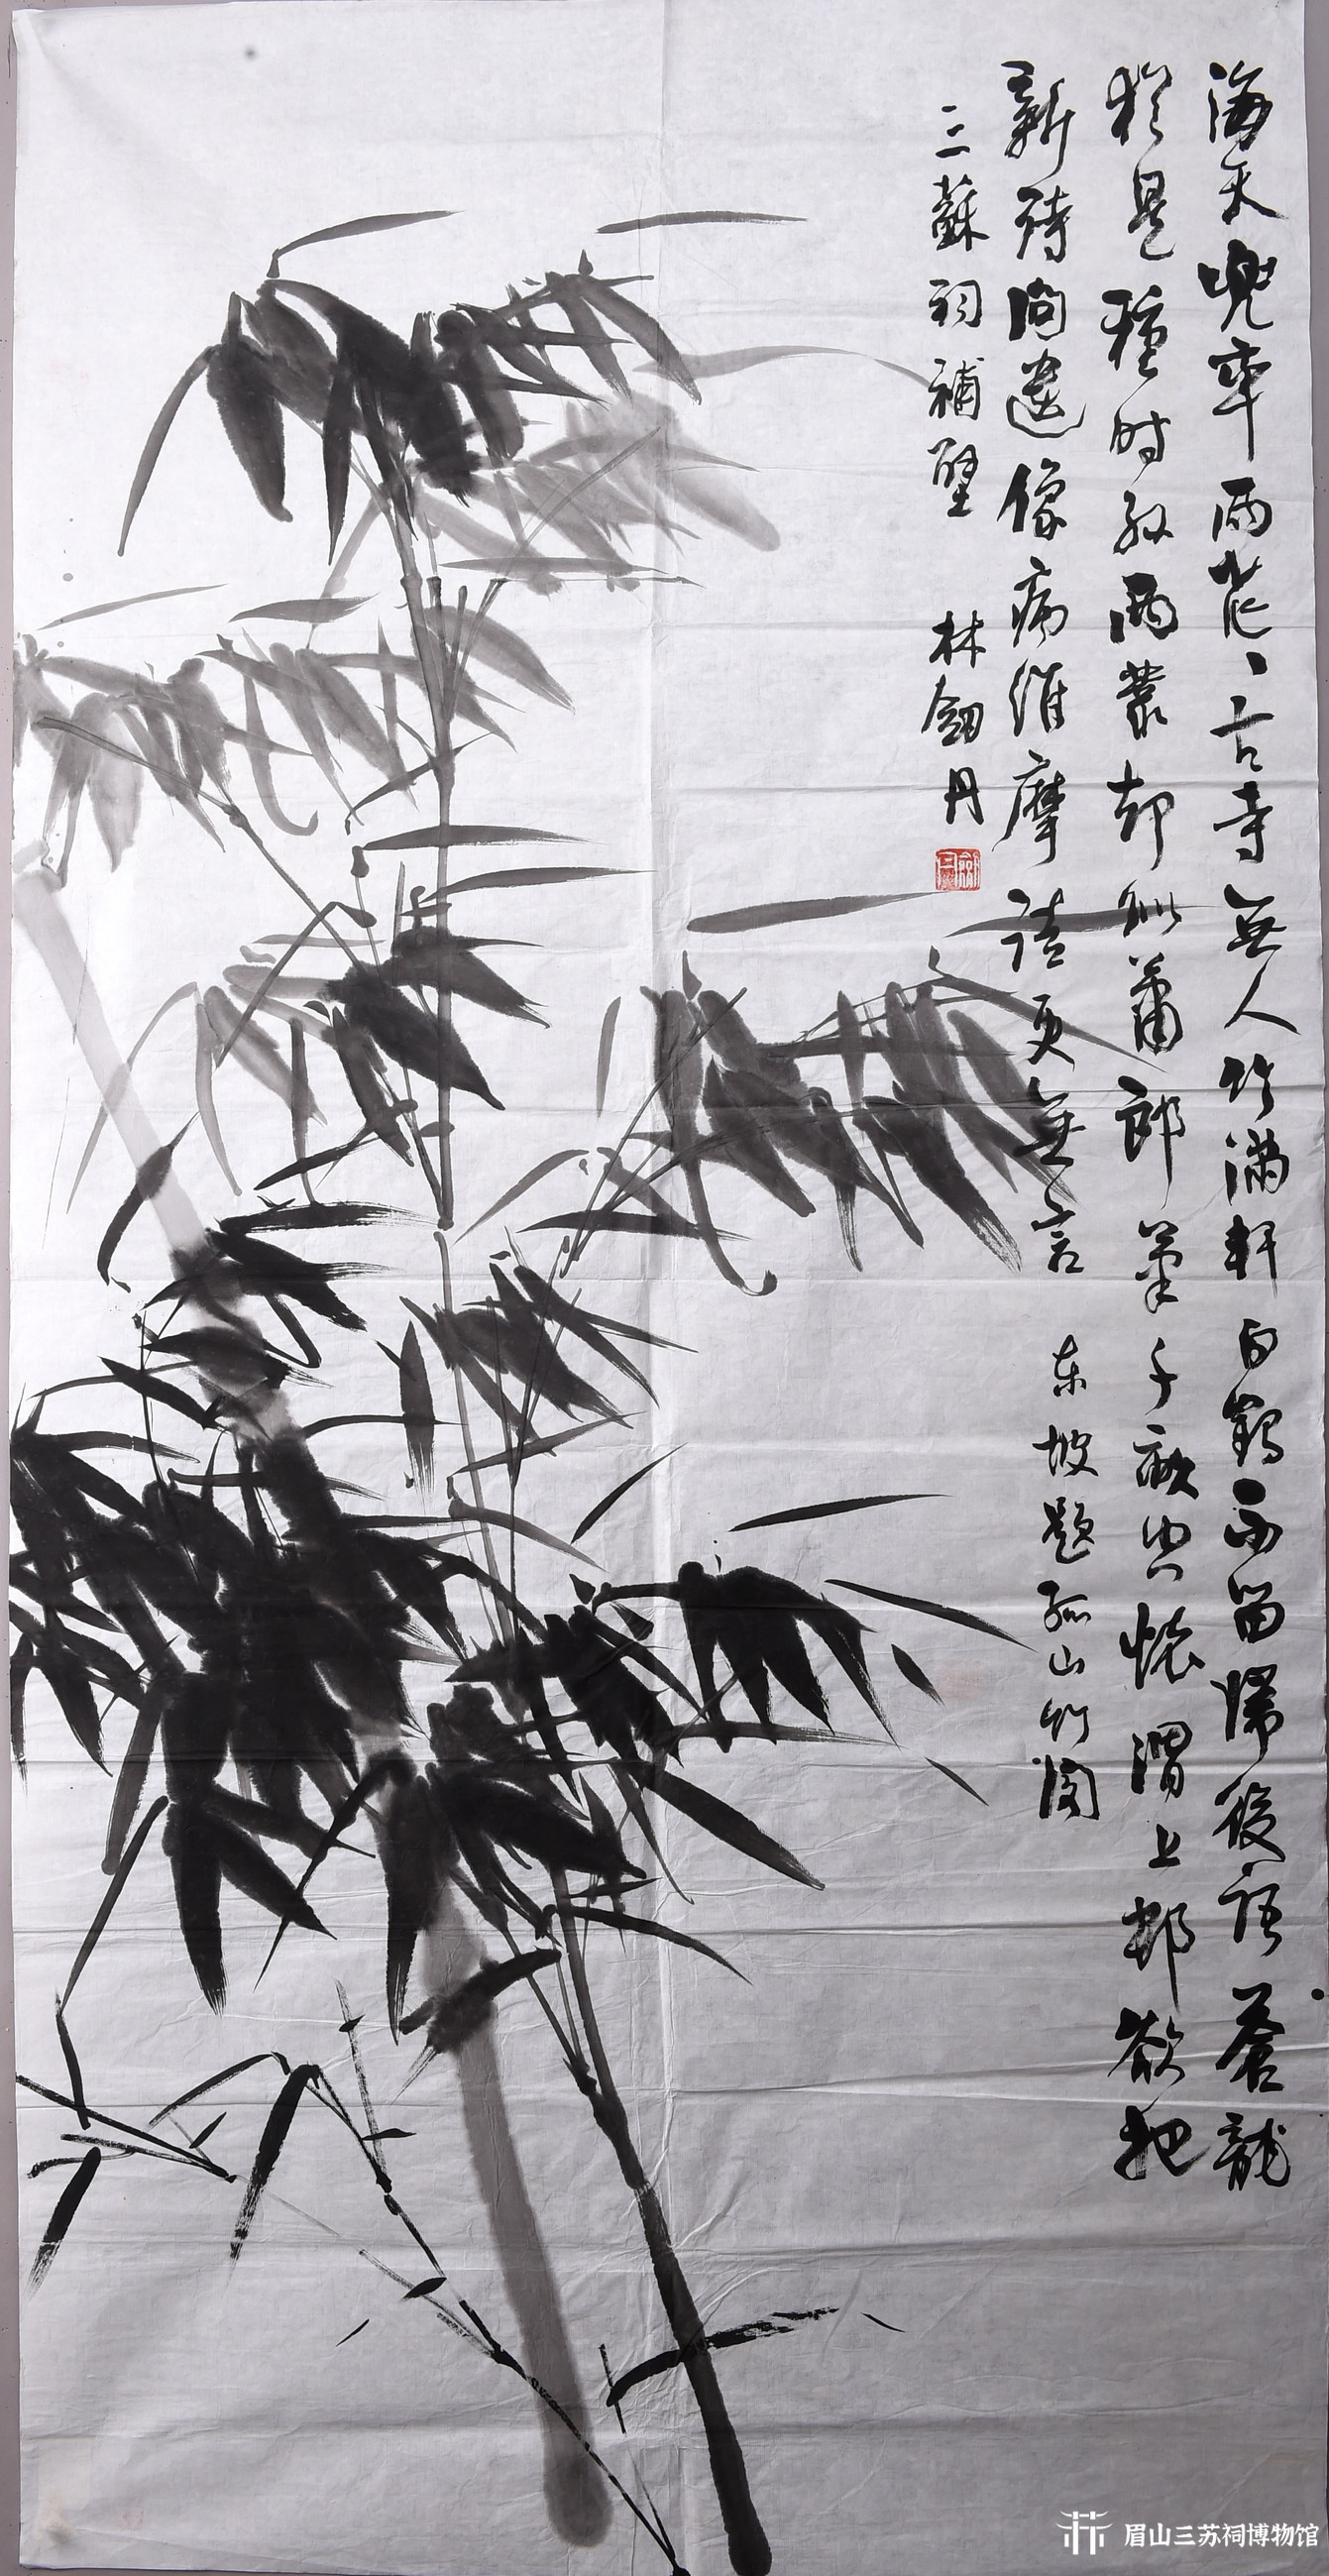 海天兜率兩茫、古寺無人竹滿軒白鶴不留歸後語蒼龍
猶是種時孫兩叢却似蕭郎筆千畝空懷渭上邨欲把
新詩問遺像病維摩詰更無言 东坡題孤山竹阁
三蘇祠補壁 林劍丹
眉山三苏祠博物馆